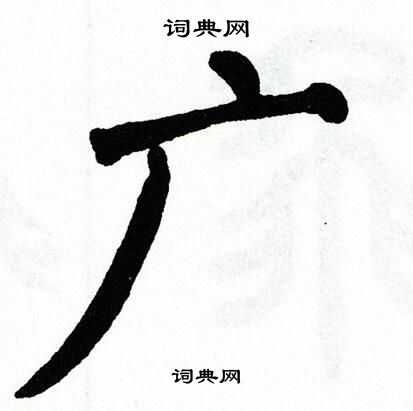 词典网
广
词典网